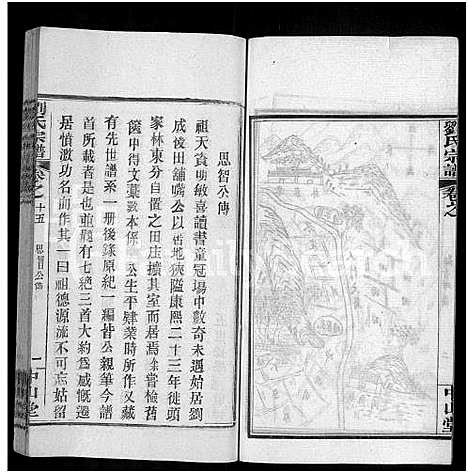 劉氏宗譜
卷之
中山堂
思智公傳
祖天資明敏喜讀書童冠場中數奇未遇始居劉
成後田舖嘴公以舊地狹隘康熙二十三年徙頭
家林東分自置之田庄擴其室而居焉余嘗檢舊
篋中得文藁數本係 公生平肄業時所作又藏
有先世譜系一册後錄原紀一編皆公親筆今譜
首所載者是也並題有七絶三首大約爲感慨遷
居憤激功名而作其一曰祖德源流不可忘姑留
劉氏宗譜
卷之十五
思智公傳
一
中山堂